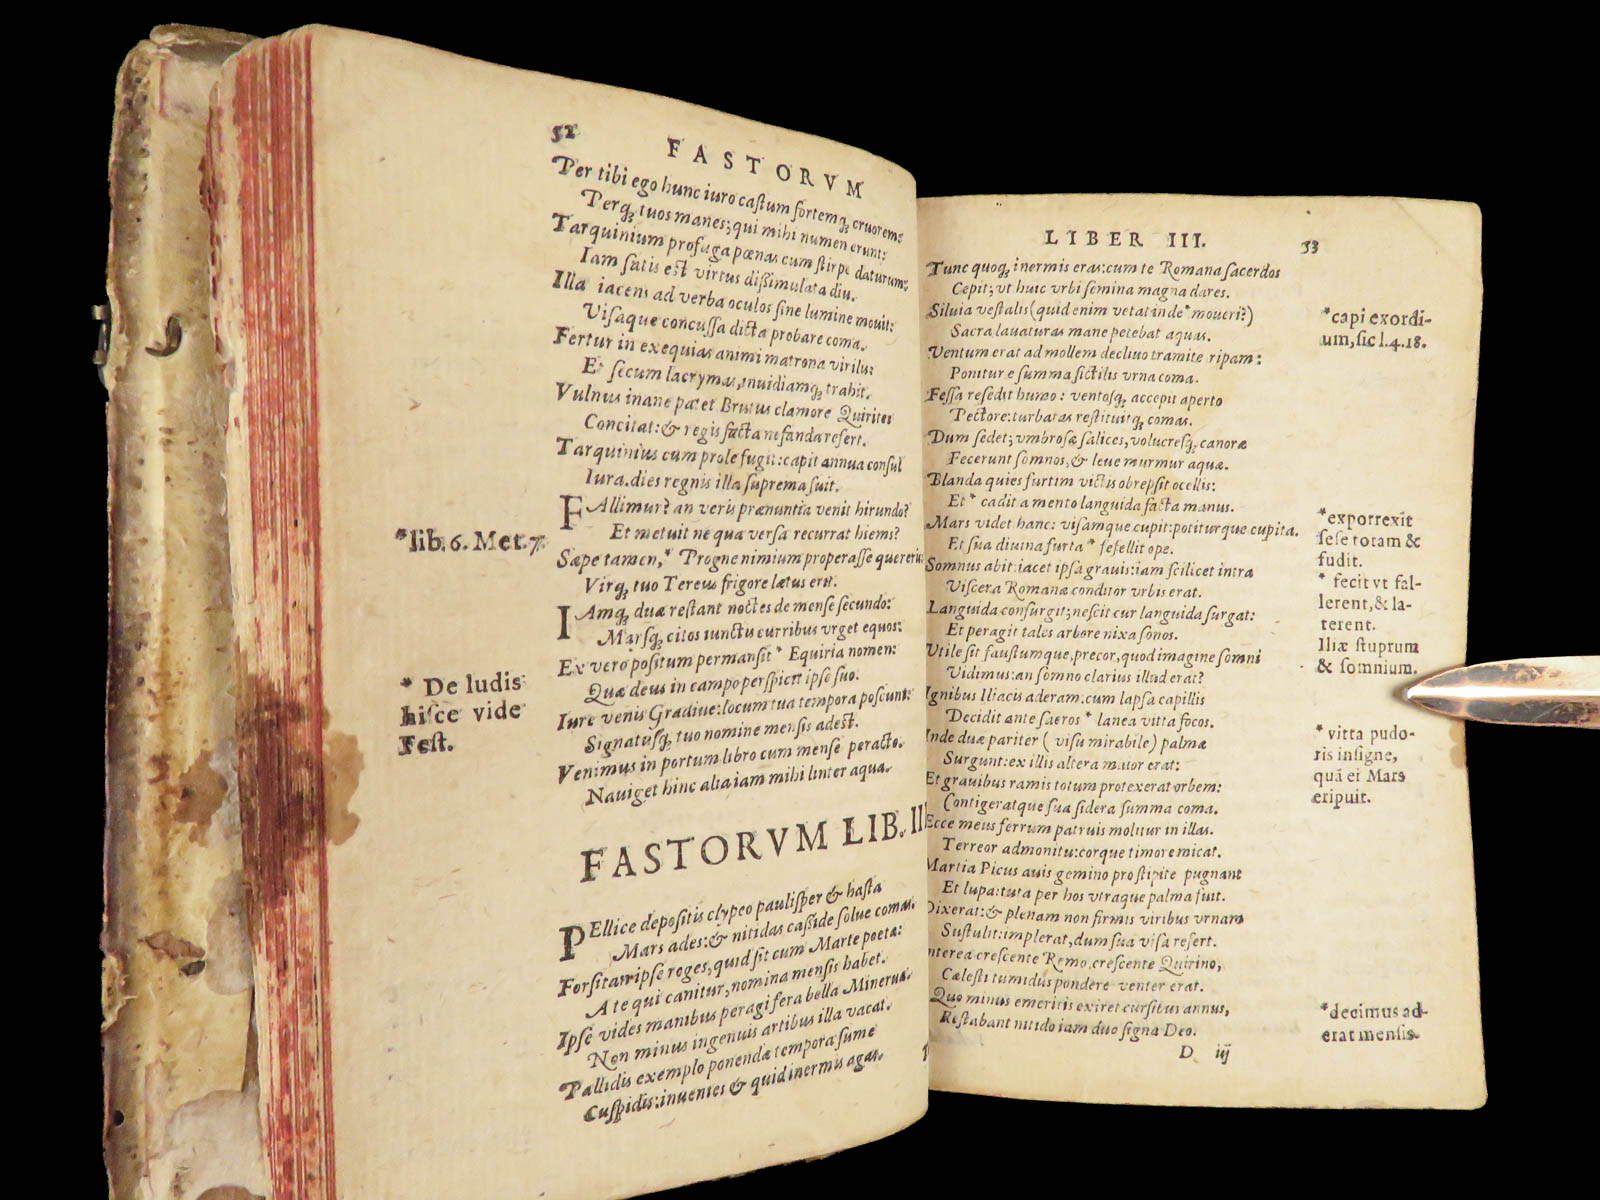 52
FASTORVM
Per tibi ego hunc iuro castum fortemq; cruorem:
Perq; tuos manes; qui mihi numen erunt:
Tarquinium profuga pœnas cum stirpe daturum:
Iam satis est virtus dissimulata diu.
Illa iacens ad verba oculos sine lumine mouit:
Visaque concussa dicta probare coma.
Fertur in exequias animi matrona virilis:
Et secum lacrymas, inuidiamq; trahit.
Vulnus inane patet. Brutus clamore Quirites
Concitat: & regis facta nefanda refert.
Tarquinius cum prole fugit: capit annua consul
Iura. dies regnis illa suprema fuit.
FAllimur? an veris prænuntia venit hirundo?
Et metuit ne qua versa recurrat hiems?
*lib. 6. Met. 7.
Sæpe tamen,* Progne nimium properasse quereris
Virq; tuo Tereus frigore lætus erit.
IAmq; duæ restant noctes de mense secundo:
Marsq; citos iunctis curribus vrget equos:
Ex vero positum permansit * Equiria nomen:
* De ludis
hisce vide
Fest.
Quæ deus in campo perspicit ipse suo.
Iure venis Gradiue: locum tua tempora poscunt:
Signatusq; tuo nomine mensis adest.
Venimus in portum libro cum mense peracto.
Nauiget hinc alia iam mihi linter aqua.
FASTORVM LIB. III
PEllice depositis clypeo paulisper & hasta
Mars ades: & nitidas casside solue comas.
Forsitan ipse roges, quid sit cum Marte poetæ:
A te qui canitur, nomina mensis habet.
Ipse vides manibus peragi fera bella Mineruæ.
Non minus ingenuis artibus illa vacat.
Pallidis exemplo ponendæ tempora sume
Cuspidis: inuenies & quid inermis agas.
LIBER III.
53
Tunc quoq; inermis eras: cum te Romana sacerdos
Cepit; vt huic vrbi semina magna dares.
Siluia vestalis (quid enim vetat inde * moueri?)
*capi exordi-
um, sic l. 4. 18.
Sacra lauaturas mane petebat aquas.
Ventum erat ad mollem decliuo tramite ripam:
Ponitur e summa fictilis vrna coma.
Fessa resedit humo: ventosq; accepit aperto
Pectore: turbatas restituitq; comas.
Dum sedet; vmbrosæ salices, volucresq; canoræ
Fecerunt somnos, & leue murmur aquæ.
Blanda quies furtim victis obrepsit ocellis:
Et * cadit a mento languida facta manus.
*exporrexit
sese totam &
fudit.
Mars videt hanc: visamque cupit: potiturque cupita.
Et sua diuina furta * fefellit ope.
* fecit vt fal-
lerent, & la-
terent.
Somnus abit: iacet ipsa grauis: iam scilicet intra
Viscera Romanæ conditor vrbis erat.
Languida consurgit; nescit cur languida surgat:
Et peragit tales arbore nixa sonos.
Iliæ stuprum
& somnium.
Vtile sit faustumque, precor, quod imagine somni
Vidimus: an somno clarius illud erat?
Ignibus Iliacis aderam: cum lapsa capillis
Decidit ante sacros * lanea vitta focos.
* vitta pudo-
ris insigne,
quā ei Mars
eripuit.
Inde duæ pariter (visu mirabile) palmæ
Surgunt: ex illis altera maior erat:
Et grauibus ramis totum protexerat orbem:
Contigeratque sua sidera summa coma.
Ecce meus ferrum patruus molitur in illas.
Terreor admonitu: corque timore micat.
Martia Picus auis gemino pro stipite pugnant
Et lupa: tuta per hos vtraque palma fuit.
Dixerat: & plenam non firmis viribus vrnam
Sustulit: implerat, dum sua visa refert.
nterea crescente Remo, crescente Quirino,
Cælesti tumidus pondere venter erat.
Quo minus emeritis exiret cursibus annus,
Restabant nitido iam duo signa Deo.
*decimus ad-
erat mensis.
D iij